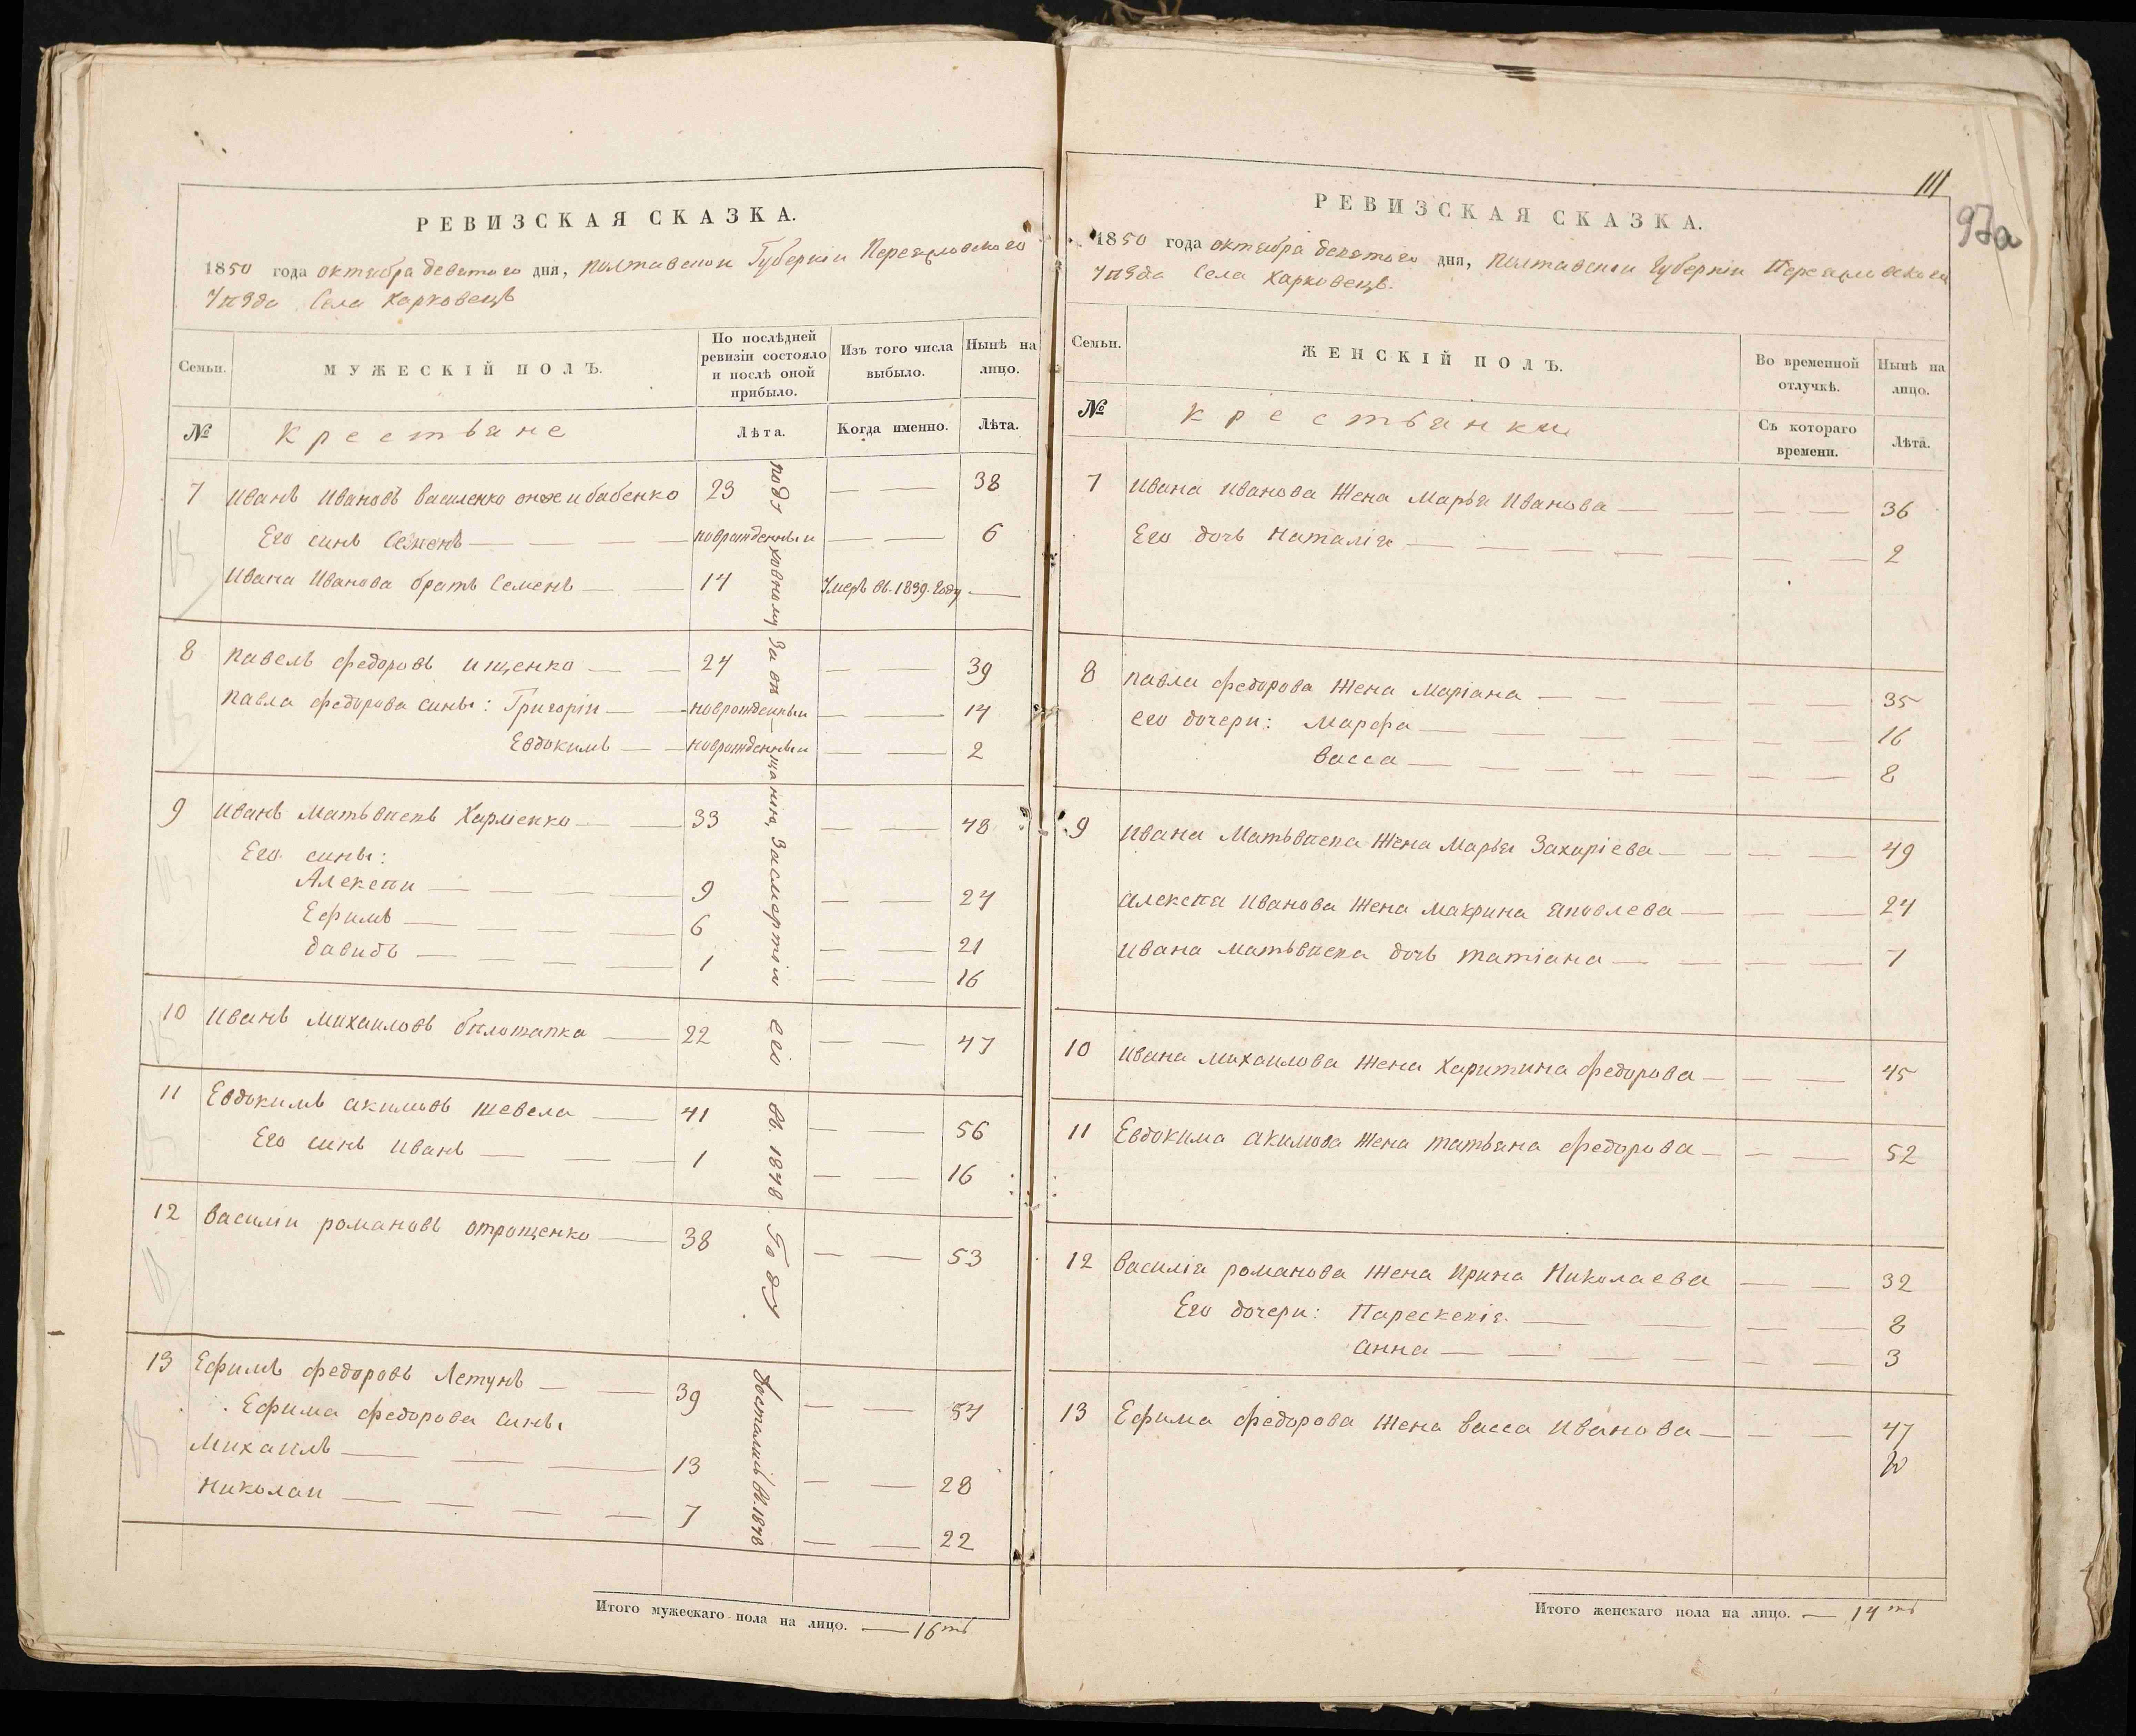 РЕВИЗСКАЯ СКАЗКА.
1850 года октября девятого дня, Полтавской Губерніи Переяловского
Уѣзда Села Харковецъ
Семьи.
МУЖЕСКІЙ ПОЛЪ.
По послѣдней ревизіи состояло и послѣ оной прибыло.
Изъ того числа выбыло.
Нынѣ на лицо.
№
Крестьяне
Лѣта.
Когда именно.
Лѣта.
7 Иванъ Ивановъ Василенко онже и бабенко 23 — — 38
Его синъ Семенъ — новрожденныи — — 6
Ивана Иванова братъ Семенъ — 14 Умеръ въ. 1839. Году —
8 Павелъ Федоровъ Ищенко — 24 — — 39
Павла Федорова сины: Григоріи — новрожденныи — — 14
Евдокимъ — новрожденныи — — 2
9 Иванъ Матьвѣевъ Харменко — 33 — — 48
Его сины:
Алексѣи — 9 — — 24
Ефимъ — 6 — — 21
Давидъ — 1 — — 16
10 Иванъ Михаиловъ билотапка — 22 — — 47
11 Евдокимъ Акимовъ Шевела — 41 — — 56
Его синъ Иванъ — 1 — — 16
12 Василии Романовъ Отрощенко — 38 — — 53
13 Ефимъ Федоровъ Летунъ — 39 — — 54
Ефима Федорова Сины
Михаилъ — 13 — — 28
Николаи — 7 — — 22
засмертію его въ. 1848. Году
въ. 1848
Итого мужескаго пола на лицо. — 16ть
111
97а
РЕВИЗСКАЯ СКАЗКА.
1850 года октября девятого дня, Полтавской Губерніи Переяловского
Уѣзда Села Харковецъ.
Семьи.
ЖЕНСКІЙ ПОЛЪ.
Во временной отлучкѣ.
Нынѣ на лицо.
№
Крестьянки
Съ котораго времени.
Лѣта.
7 Ивана Иванова Жена Марья Иванова — — — 36
Его дочь Наталія — — — 2
8 Павла Федорова Жена Маріана — — — 35
его дочери: Марфа — — — 16
Васса — — — 8
9 Ивана Матьвѣева Жена Марья Захаріева — — — 49
Алексѣя Иванова Жена Макрина Яковлева — — — 24
Ивана Матьвѣева дочь Татіана — — — 7
10 Ивана Михаилова Жена Харитина Федорова — — — 45
11 Евдокима Акимова Жена Татьяна Федорова — — — 52
12 Василія Романова Жена Ирина Николаева — — 32
Его дочери: Парескевія — — — 8
Анна — — — 3
13 Ефима Федорова Жена Васса Иванова — — — 47
Итого женскаго пола на лицо. — 14ть